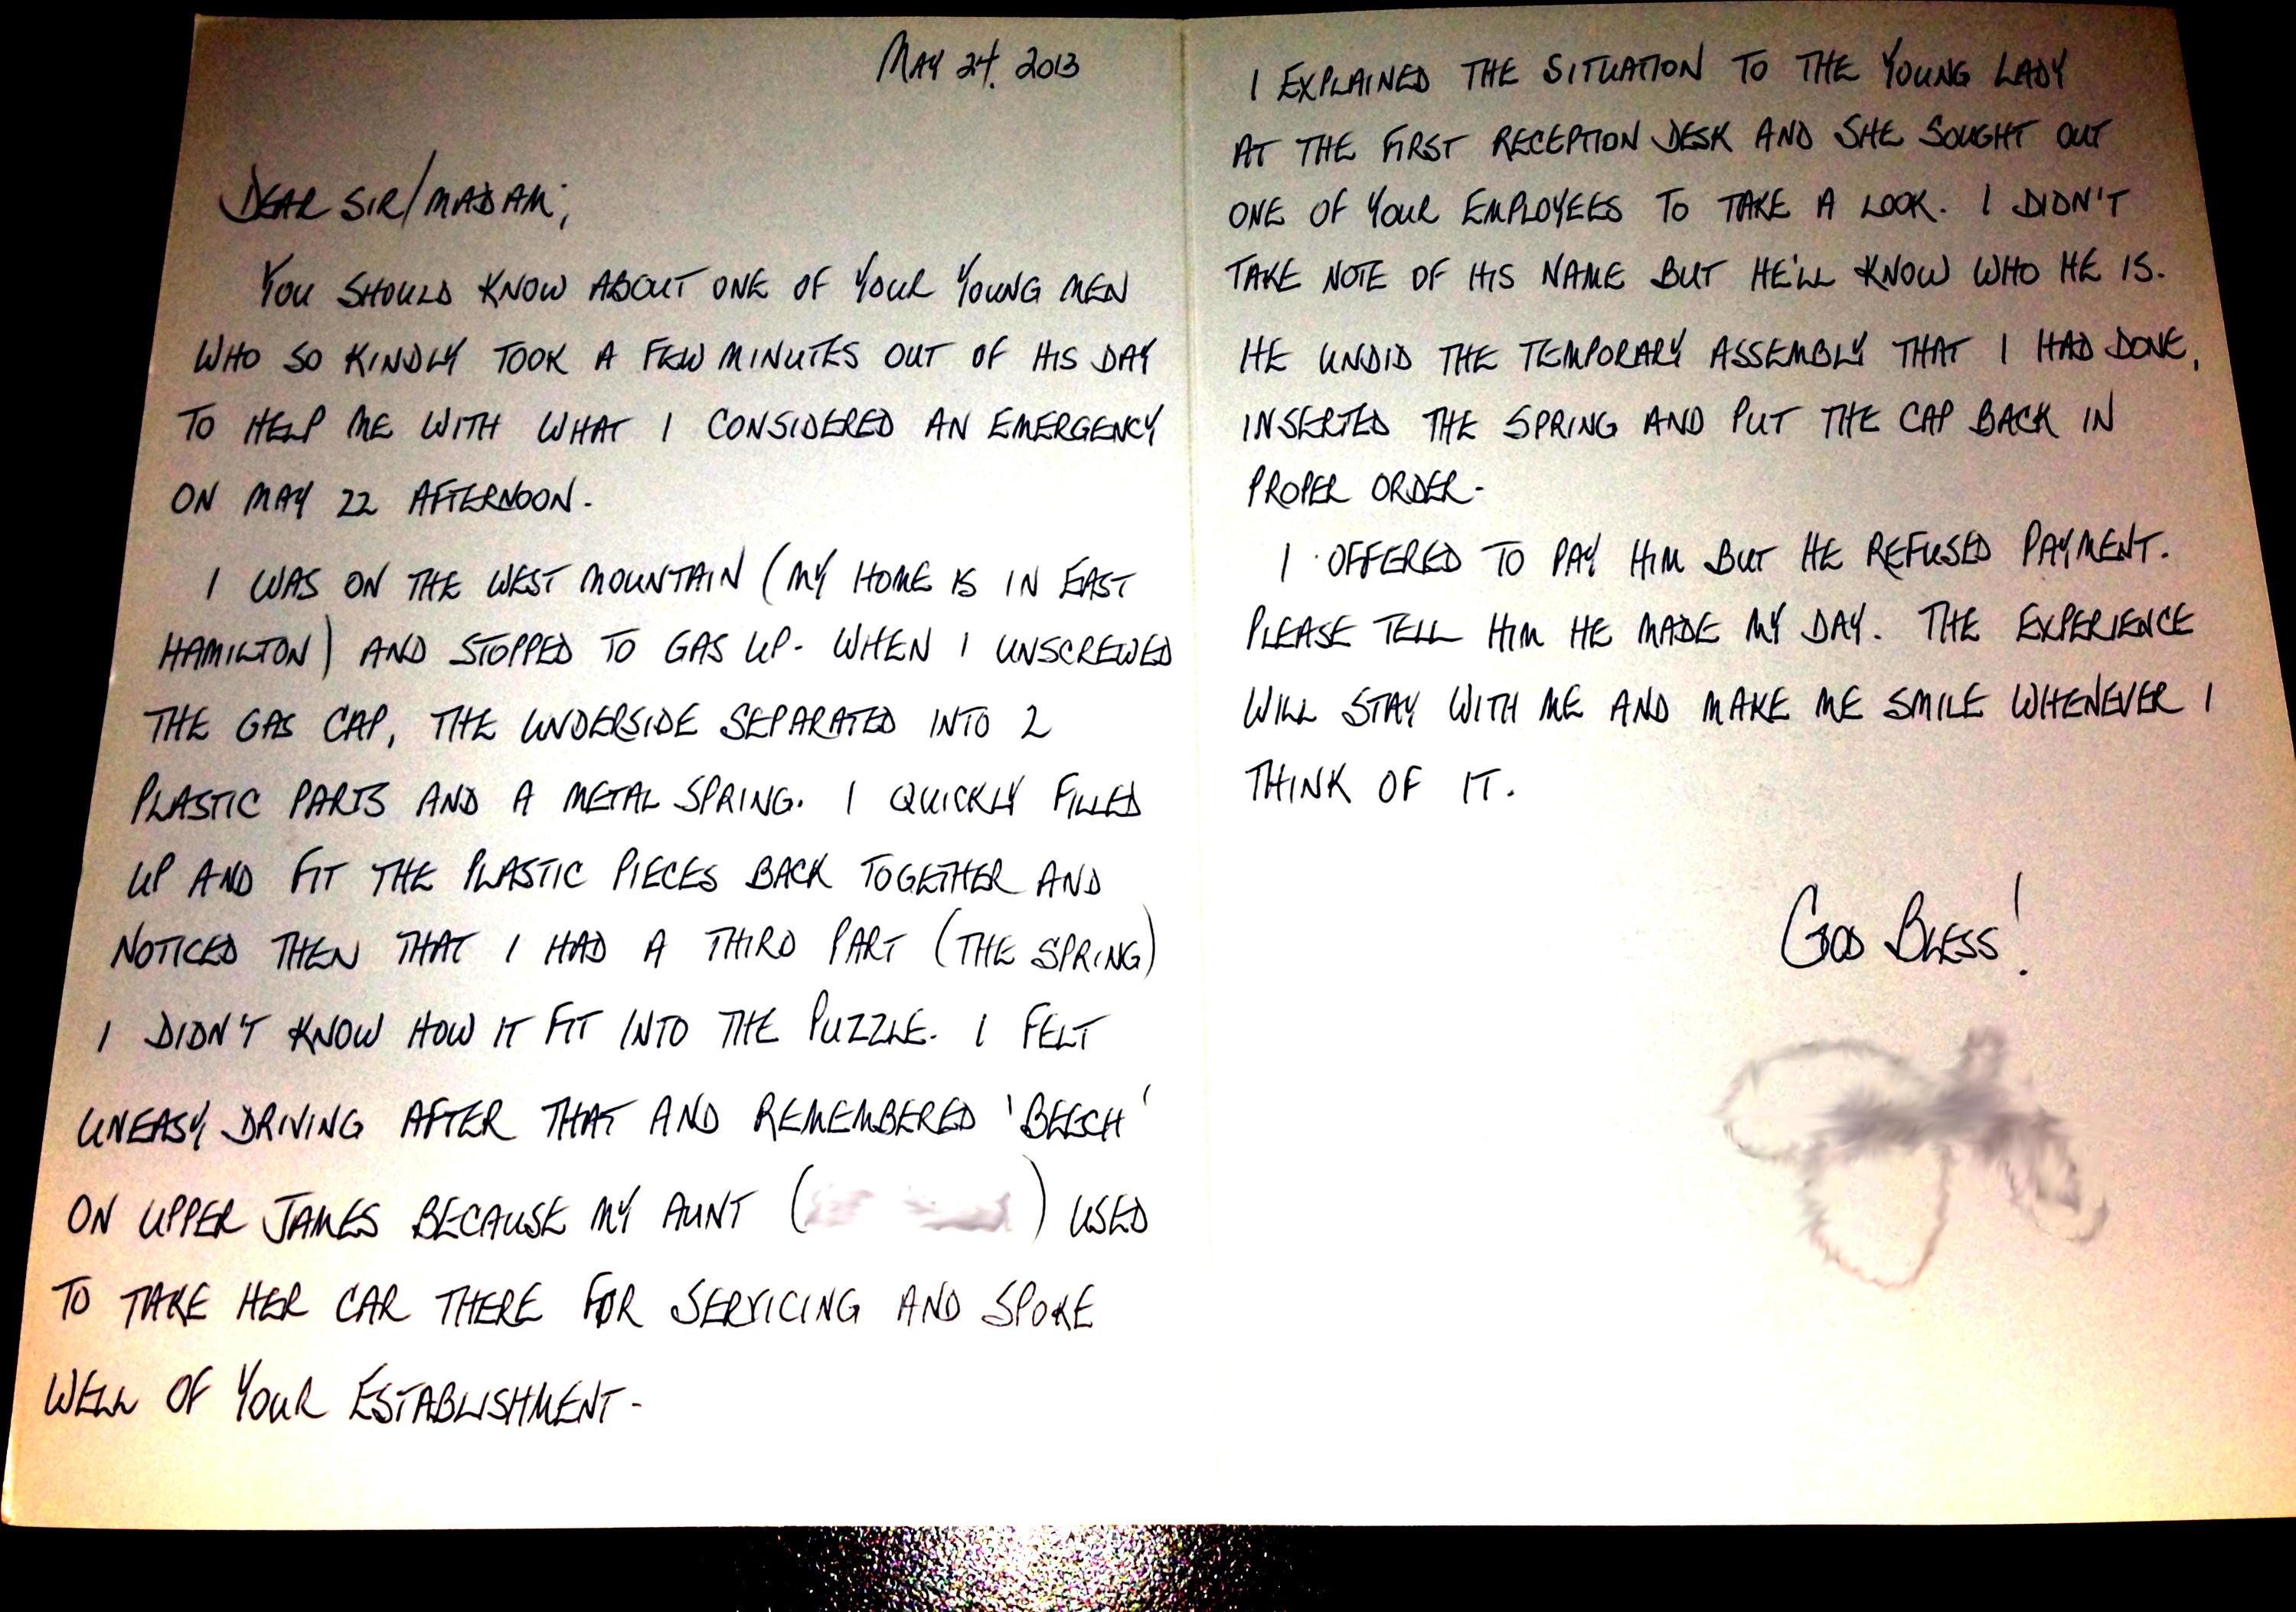 MAY 24, 2013
DEAR SIR/MADAM;
YOU SHOULD KNOW ABOUT ONE OF YOUR YOUNG MEN
WHO SO KINDLY TOOK A FEW MINUTES OUT OF HIS DAY
TO HELP ME WITH WHAT I CONSIDERED AN EMERGENCY
ON MAY 22 AFTERNOON.
I WAS ON THE WEST MOUNTAIN (MY HOME IS IN EAST
HAMILTON) AND STOPPED TO GAS UP. WHEN I UNSCREWED
THE GAS CAP, THE UNDERSIDE SEPARATED INTO 2
PLASTIC PARTS AND A METAL SPRING. I QUICKLY FILLED
UP AND FIT THE PLASTIC PIECES BACK TOGETHER AND
NOTICED THEN THAT I HAD A THIRD PART (THE SPRING)
I DIDN'T KNOW HOW IT FIT INTO THE PUZZLE. I FELT
UNEASY DRIVING AFTER THAT AND REMEMBERED 'BEECH'
ON UPPER JAMES BECAUSE MY AUNT ( ) USED
TO TAKE HER CAR THERE FOR SERVICING AND SPOKE
WELL OF YOUR ESTABLISHMENT.
I EXPLAINED THE SITUATION TO THE YOUNG LADY
AT THE FIRST RECEPTION DESK AND SHE SOUGHT OUT
ONE OF YOUR EMPLOYEES TO TAKE A LOOK. I DIDN'T
TAKE NOTE OF HIS NAME BUT HE'LL KNOW WHO HE IS.
HE UNDID THE TEMPORARY ASSEMBLY THAT I HAD DONE,
INSERTED THE SPRING AND PUT THE CAP BACK IN
PROPER ORDER.
I OFFERED TO PAY HIM BUT HE REFUSED PAYMENT.
PLEASE TELL HIM HE MADE MY DAY. THE EXPERIENCE
WILL STAY WITH ME AND MAKE ME SMILE WHENEVER I
THINK OF IT.
GOD BLESS!